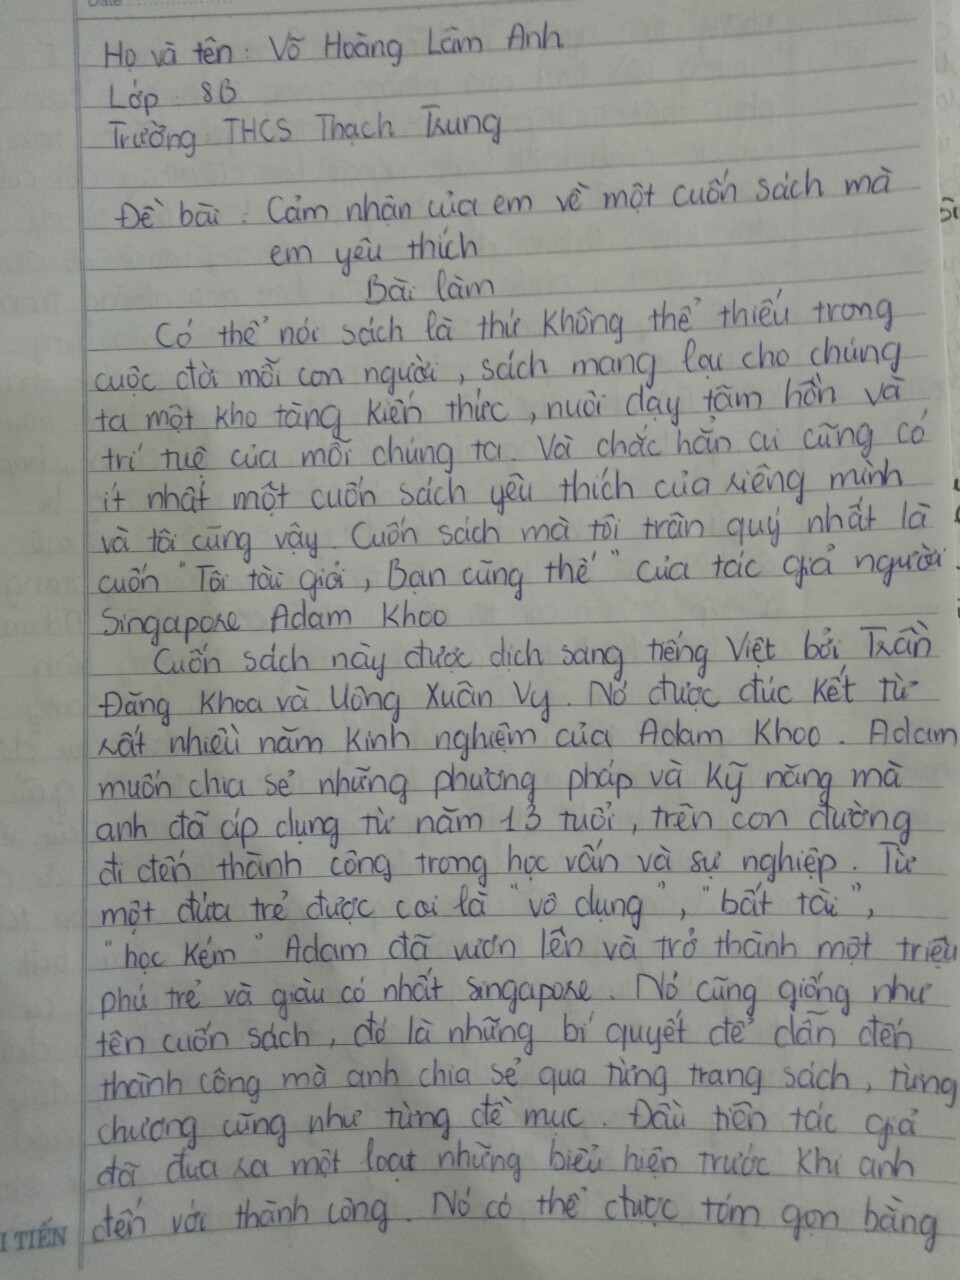 Date
Họ và tên: Võ Hoàng Lâm Anh
Lớp: 8B
Trường: THCS Thạch Trung
Đề bài: Cảm nhận của em về một cuốn sách mà
em yêu thích
Bài làm
Có thể nói sách là thứ không thể thiếu trong
cuộc đời mỗi con người, sách mang lại cho chúng
ta một kho tàng kiến thức, nuôi dạy tâm hồn và
trí tuệ của mỗi chúng ta. Và chắc hẳn ai cũng có
ít nhất một cuốn sách yêu thích của riêng mình
và tôi cũng vậy. Cuốn sách mà tôi trân quý nhất là
cuốn "Tôi tài giỏi, Bạn cũng thế" của tác giả người
Singapore Adam Khoo
Cuốn sách này được dịch sang tiếng Việt bởi Trần
Đăng Khoa và Uông Xuân Vy. Nó được đúc kết từ
rất nhiều năm kinh nghiệm của Adam Khoo. Adam
muốn chia sẻ những phương pháp và kỹ năng mà
anh đã áp dụng từ năm 13 tuổi, trên con đường
đi đến thành công trong học vấn và sự nghiệp. Từ
một đứa trẻ được coi là "vô dụng", "bất tài",
"học kém" Adam đã vươn lên và trở thành một triệu
phú trẻ và giàu có nhất Singapore. Nó cũng giống như
tên cuốn sách, đó là những bí quyết để dẫn đến
thành công mà anh chia sẻ qua từng trang sách, từng
chương cũng như từng đề mục. Đầu tiên tác giả
đã đưa ra một loạt những biểu hiện trước khi anh
đến với thành công. Nó có thể được tóm gọn bằng
I TIẾN